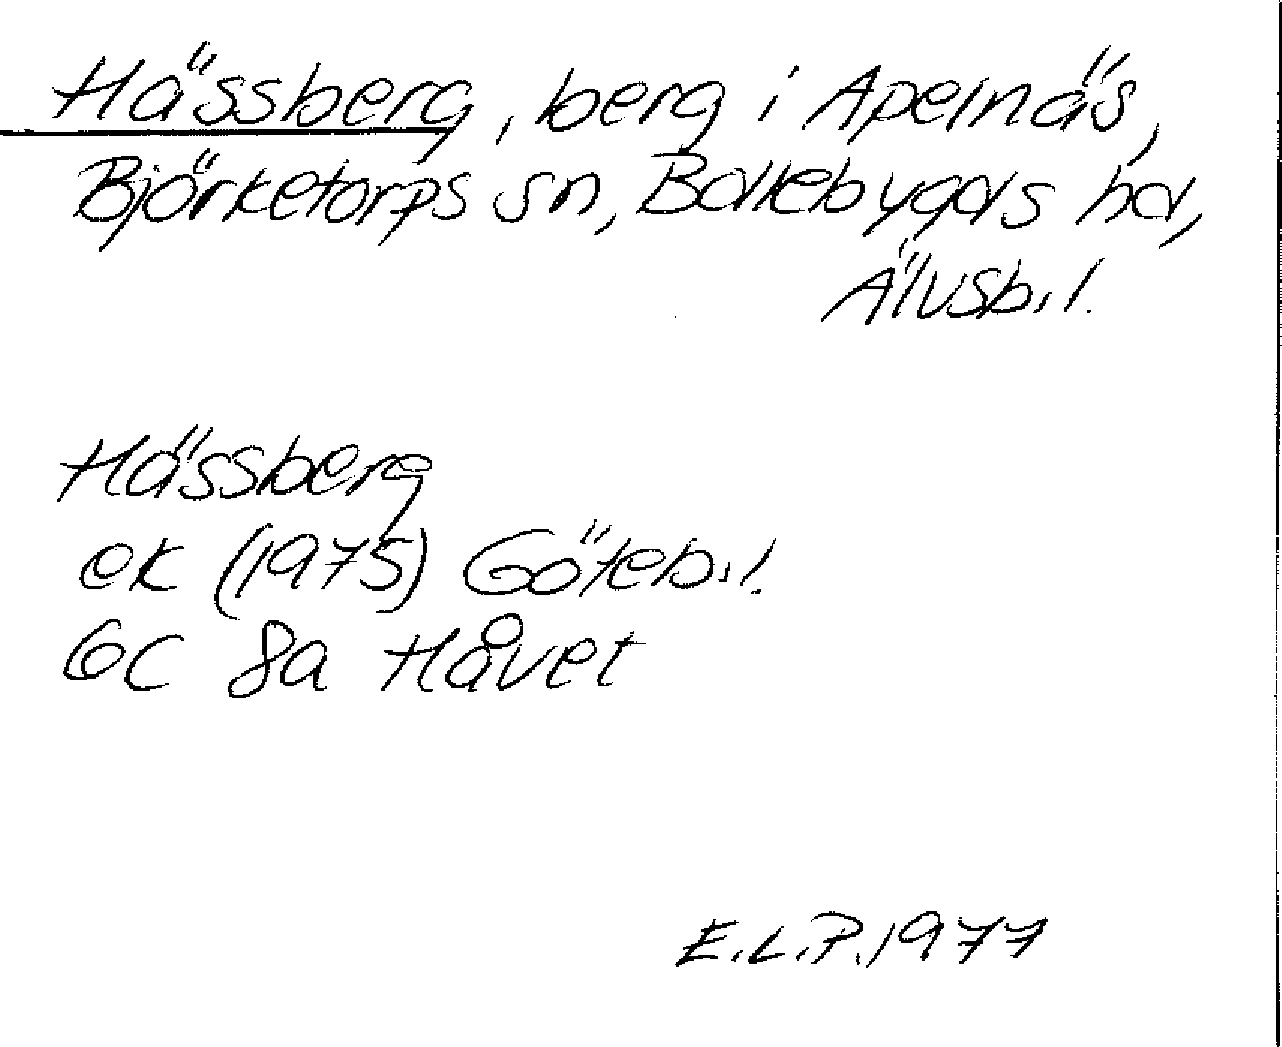 Hässberg, berg i Apelnäs,
Björketorps sn, Bollebygds hd,
Älvsb.l.
Hässberg
ek (1975) Göteb.l.
6C 8a Håvet
E.L.P. 1977